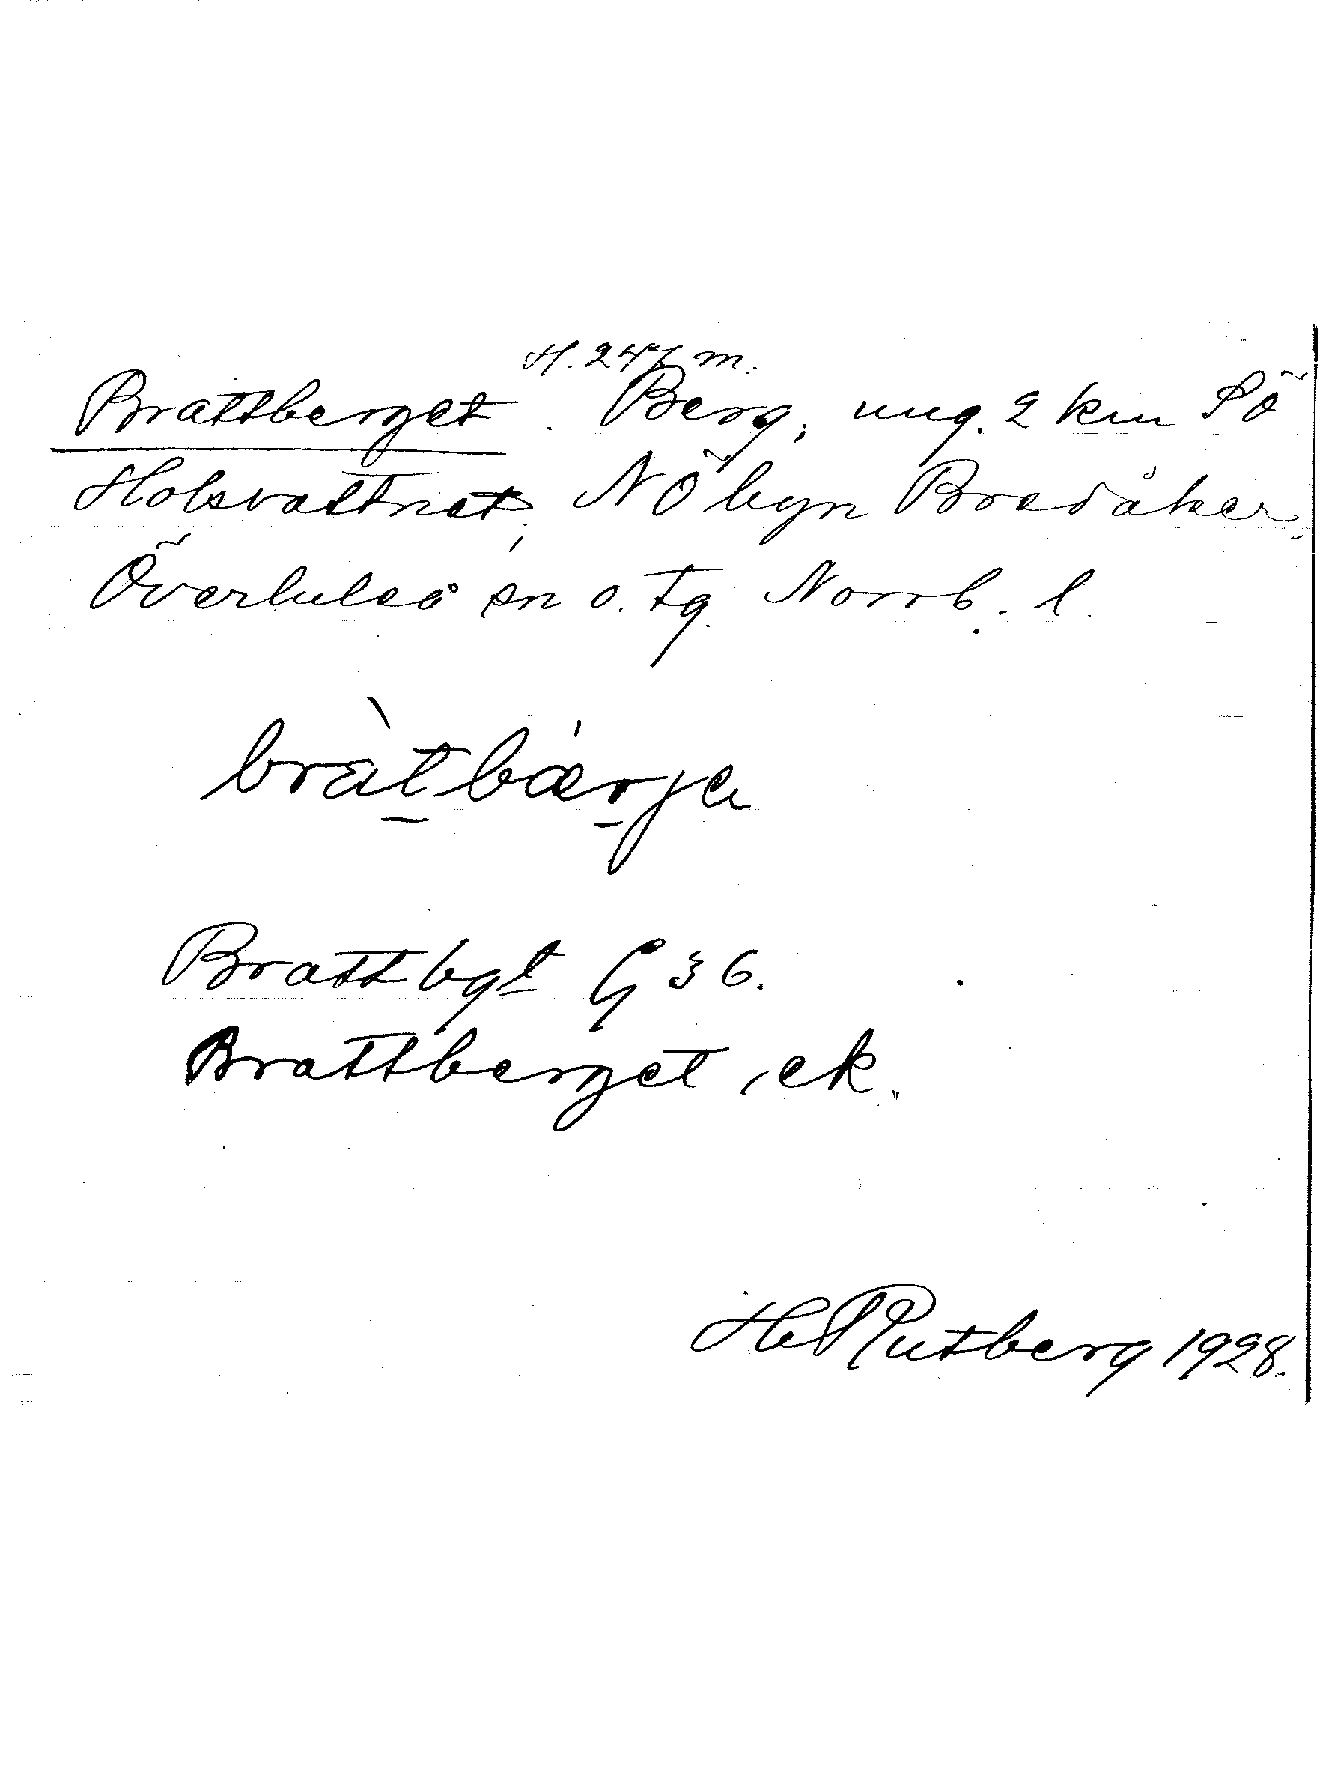 H. 247 m.
Brattberget. Berg, ung. 2 km SÖ
Holsvattnet, NÖ byn Bredåker,
Överluleå sn o. tg. Norrb. l.
bràtbærje
Brattbgt G 36.
Brattberget, ek.
H Rutberg 1928.